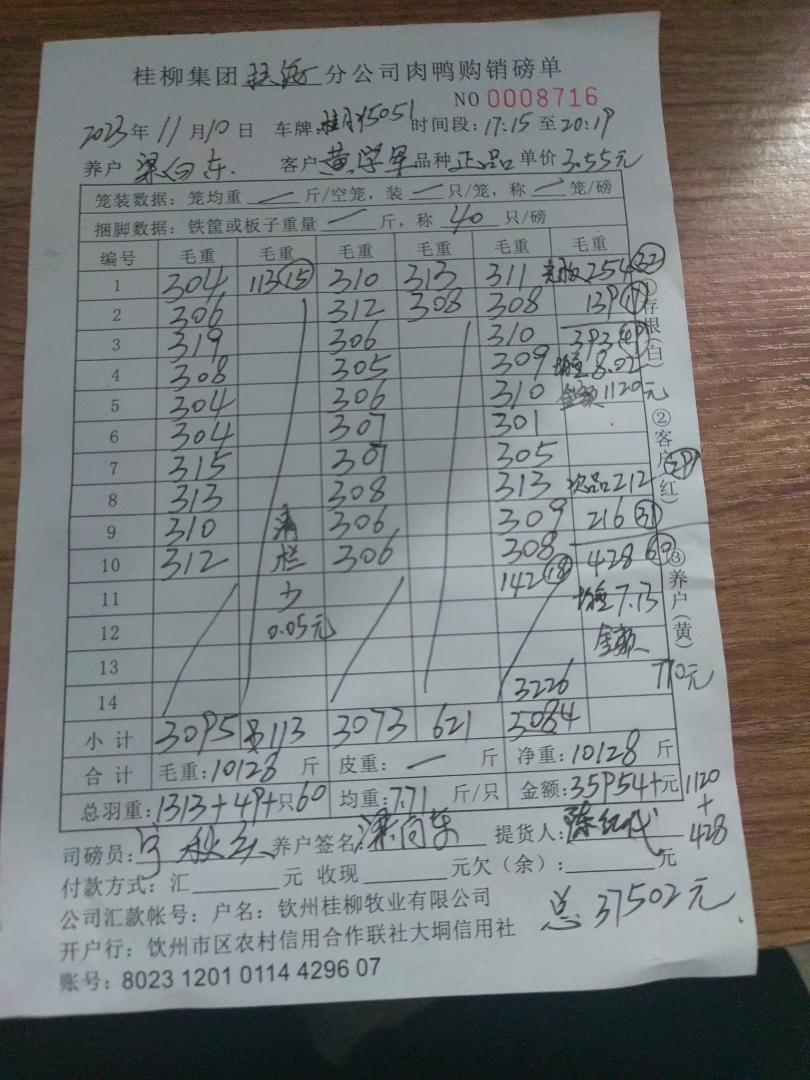 桂柳集团 分公司肉鸭购销磅单
NO 0008716
2023年 11月10日 车牌 桂 Y5051 时间段:17:15至20:19
养户 梁向东 客户 黄学军 品种 正品 单价 3.55元
笼装数据:笼均重 — 斤/空笼,装 — 只/笼,称 — 笼/磅
捆脚数据:铁筐或板子重量 — 斤,称 40 只/磅
编号 毛重 毛重 毛重 毛重 毛重 毛重
1 304 113 15 310 313 311 254 32
2 306 312 308 308 139 17
3 319 306 310 393 49
4 308 305 309 均重 8.02
5 304 306 310 金额 1120元
6 304 307 301
7 315 307 305
8 313 308 313 次品 212 29
9 310 满 306 309 216 31
10 312 栏 306 308 428 60
11 少 142 18 均重 7.13
12 0.05元 金额
13 770元
14 3226
小计 3095 113 3073 621 3084
合计 毛重:10128 斤 皮重: — 斤 净重:10128 斤
总羽重:1313+49+只60 均重:7.71 斤/只 金额:35954+元 1120
+
428
司磅员: 养户签名:梁向东 提货人:
付款方式:汇 元 收现 元欠(余): 元
公司汇款帐号:户名:钦州桂柳牧业有限公司
总 37502元
开户行:钦州市区农村信用合作联社大垌信用社
账号:8023 1201 0114 4296 07
①存根(白) ②客户(红) ③养户(黄)